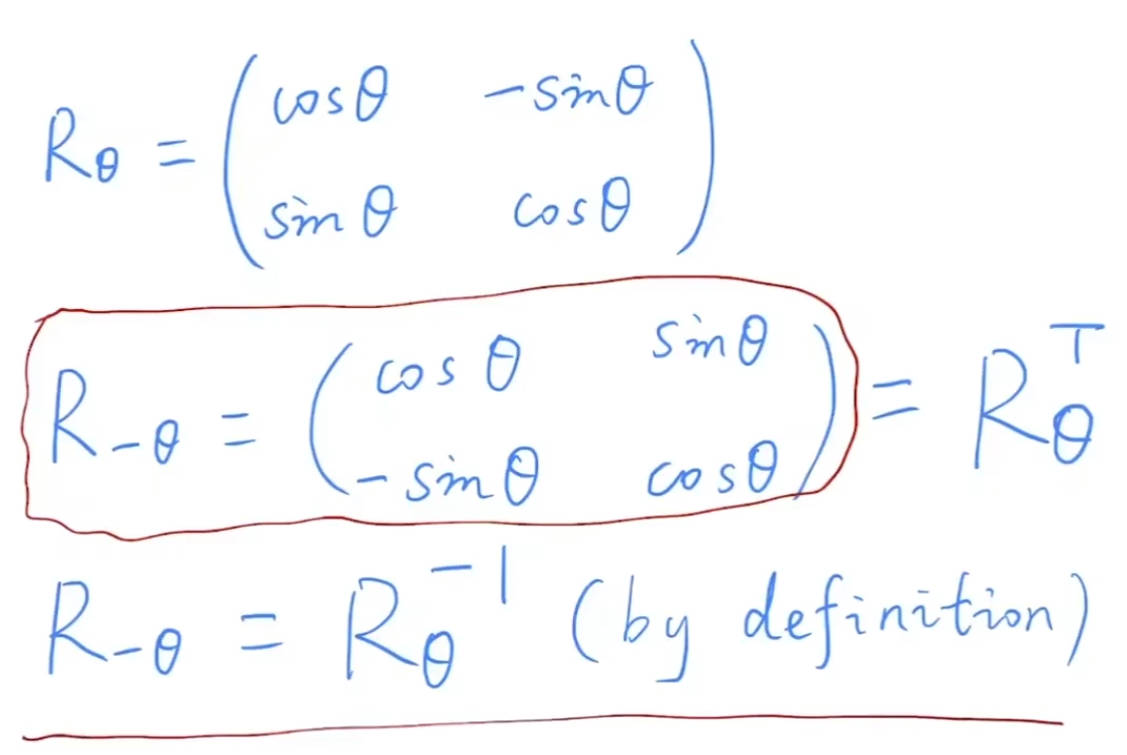 R_θ = ( cosθ  -sinθ
sinθ  cosθ )
R_-θ = ( cos θ  sinθ
-sinθ  cosθ ) = R_θ^T
R_-θ = R_θ^-1 (by definition)